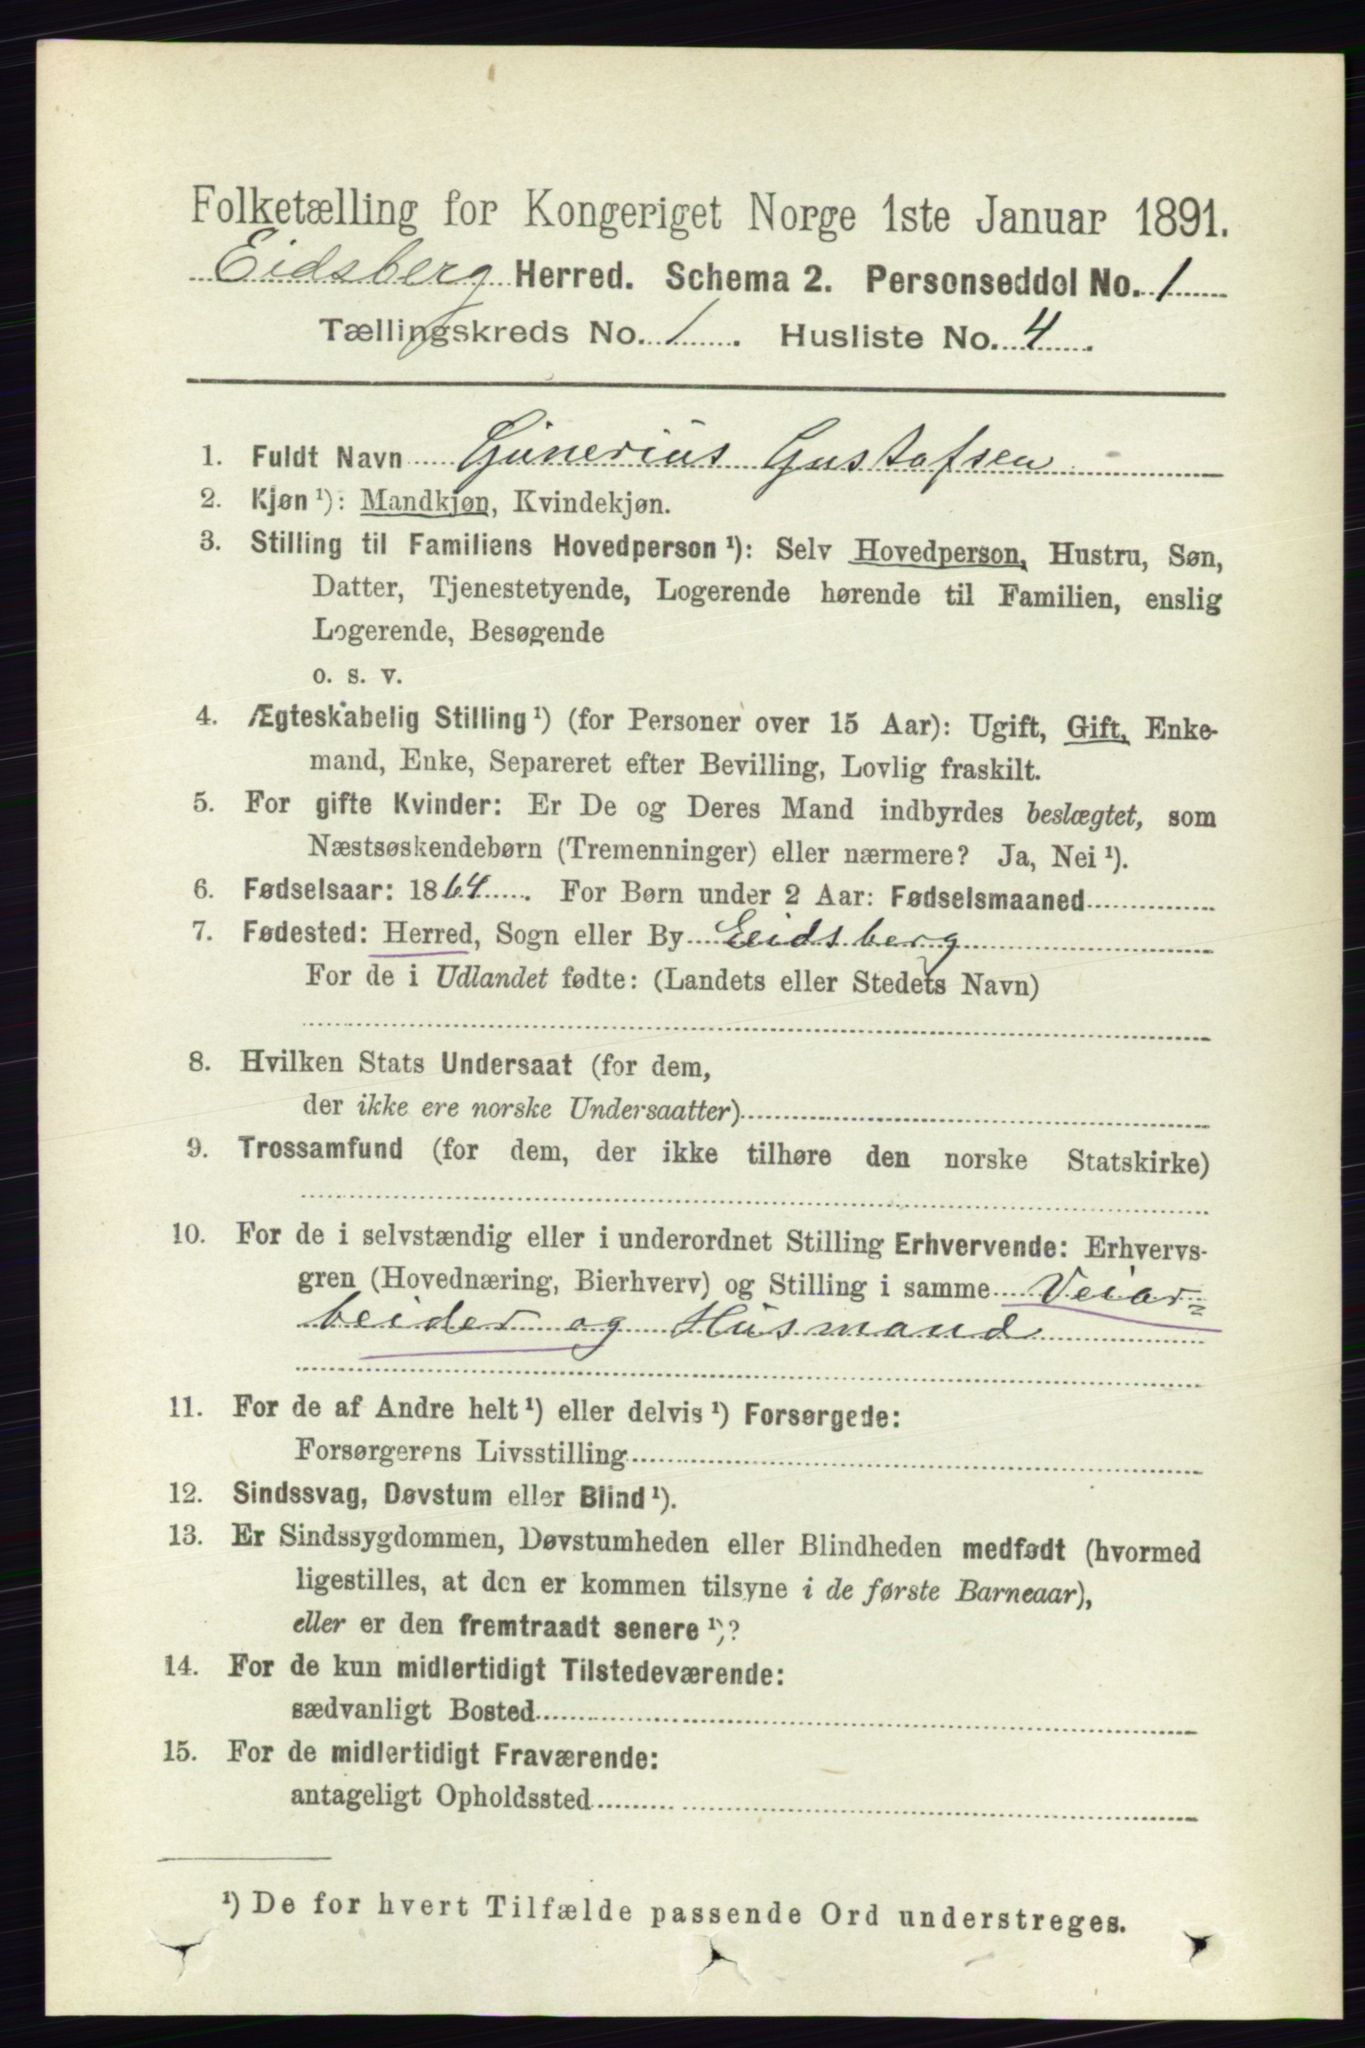 Folketælling for Kongeriget Norge 1ste Januar 1891.
Eidsberg Herred. Schema 2. Personseddel No. 1
Tællingskreds No. 1. Husliste No. 4.
1. Fuldt Navn Gunerius Gustafsen
2. Kjøn ¹): Mandkjøn, Kvindekjøn.
3. Stilling til Familiens Hovedperson ¹): Selv Hovedperson, Hustru, Søn,
Datter, Tjenestetyende, Logerende hørende til Familien, enslig
Logerende, Besøgende
o. s. v.
4. Ægteskabelig Stilling ¹) (for Personer over 15 Aar): Ugift, Gift, Enke-
mand, Enke, Separeret efter Bevilling, Lovlig fraskilt.
5. For gifte Kvinder: Er De og Deres Mand indbyrdes beslægtet, som
Næstsøskendebørn (Tremenninger) eller nærmere? Ja, Nei ¹).
6. Fødselsaar: 1864. For Børn under 2 Aar: Fødselsmaaned
7. Fødested: Herred, Sogn eller By Eidsberg
For de i Udlandet fødte: (Landets eller Stedets Navn)
8. Hvilken Stats Undersaat (for dem,
der ikke ere norske Undersaatter)
9. Trossamfund (for dem, der ikke tilhøre den norske Statskirke)
10. For de i selvstændig eller i underordnet Stilling Erhvervende: Erhvervs-
gren (Hovednæring, Bierhverv) og Stilling i samme Veiar=
beider og Husmand
11. For de af Andre helt ¹) eller delvis ¹) Forsørgede:
Forsørgerens Livsstilling
12. Sindssvag, Døvstum eller Blind ¹).
13. Er Sindssygdommen, Døvstumheden eller Blindheden medfødt (hvormed
ligestilles, at den er kommen tilsyne i de første Barneaar),
eller er den fremtraadt senere ¹)?
14. For de kun midlertidigt Tilstedeværende:
sædvanligt Bosted
15. For de midlertidigt Fraværende:
antageligt Opholdssted
¹) De for hvert Tilfælde passende Ord understreges.